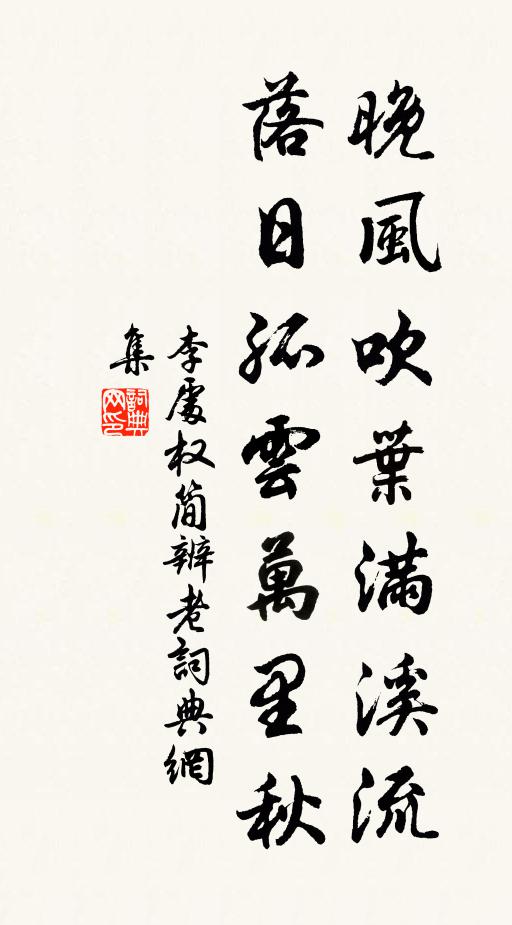 晚風吹葉滿溪流
落日孤雲萬里秋
李處权简辨老詞典網
集
詞典
网印